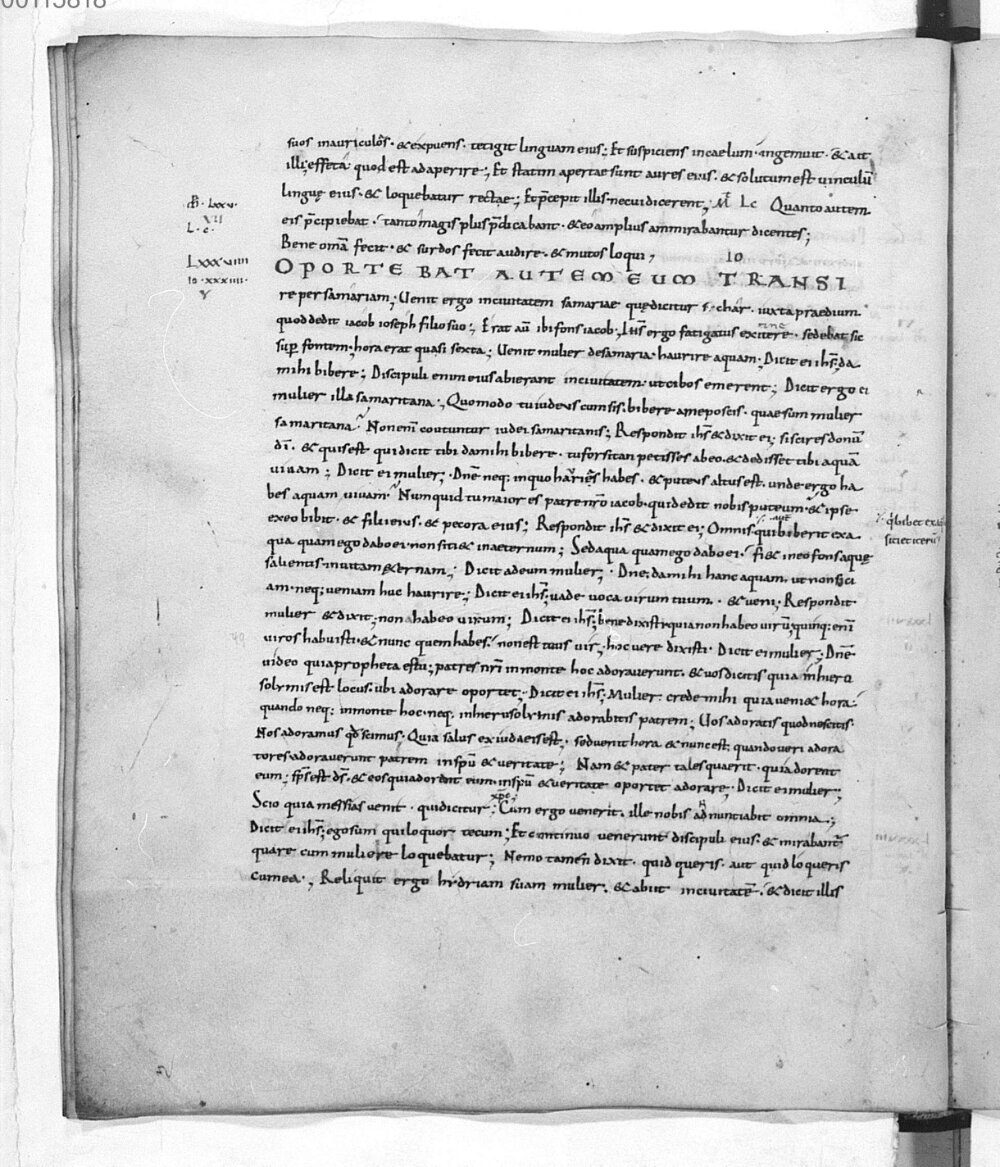 00115818
suos inauriculos · &expuens · tetigit linguam eius; Et suspiciens incaelum · ingemuit · & ait
illi; effeta quod est adaperire; Et statim apertae sunt aures eius · & solutum est uinculū
linguę eius · & loquebatur rectae; Et p̄cepit illis · necui dicerent; M̄ Lc Quanto autem
eis p̄cipiebat · tanto magis plus p̄dicabant · & eo amplius ammirabantur dicentes;
Bene omā fecit · & surdos fecit audire · & mutos loqui;
LXXXVIIII
IO
OPORTEBAT AUTEM EUM TRANSI
Io · xxxiiii ·
V
re per samariam; Uenit ergo inciuitatem samariae quędicitur s·char · iuxta praedium
quod dedit iacob ioseph filio suo; Erat aū ibi fons iacob; ih̄s ergo fatigatus exitere · sedebat sic
sup̄ fontem; hora erat quasi sexta; Uenit mulier desamaria haurire aquam; Dicit ei ih̄s; da
mihi bibere; Discipuli enim eius abierant inciuitatem · ut cibos emerent; Dicit ergo ei
mulier illa samaritana; Quomodo tu iudeus cum sis · bibere ame poscis · quae sum mulier
samaritana; Non enī coutuntur iudei samaritanis; Respondit ih̄s & dixit ei; si scires donū
dī · & quis est qui dicit tibi da mihi bibere · tu forsitan petisses abeo · & dedisset tibi aquā
uiuam; Dicit ei mulier; Dn̄e neq; inquo hauries habes · & puteus altus est · unde ergo ha
bes aquam uiuam; Numquid tu maior es patre nr̄o iacob · qui dedit nobis puteum · & ipse
exeo bibit · & filii eius · & pecora eius; Respondit ih̄s & dixit ei; Omnis · qui biberit exa
qua quam ego dabo ei · non siti& inaeternum; Sed aqua quam ego dabo ei · fi& ineo fons aquę
salientis inuitam &ernam; Dicit adeum mulier; Dn̄e; da mihi hanc aquam · ut non siti
am · neq; ueniam huc haurire; Dicit ei ih̄s; uade uoca uirum tuum · & ueni; Respondit
mulier & dixit; non habeo uirum; Dicit ei ih̄s; bene dixisti · quia non habeo uirū; quinq; enī
uiros habuisti · & nunc quem habes · non est tuus uir; hoc uere dixisti · Dicit ei mulier; Dn̄e
uideo quia propheta es tu; patres nr̄i inmonte hoc adorauerunt · & uos dicitis quia inhiero
solymis est locus · ubi adorare oportet; Dicit ei ih̄s; Mulier crede mihi quia ueni& hora ·
quando neq; inmonte hoc · neq; inhierusolymis adorabitis patrem; Uos adoratis quod nescitis
Nos adoramus qd̄ scimus · Quia salus exiudaeis est · sed uenit hora & nunc est; quando ueri adora
tores adorauerunt patrem inspū & ueritate; Nam & pater tales quaerit · qui adorent
eum; sp̄s est ds̄ · & eos qui adorant eum · inspū & ueritate oportet adorare; Dicit ei mulier;
Scio quia messias uenit · qui dicitur xp̄c; Cum ergo uenerit · ille nobis adnuntiabit omnia;
Dicit ei ih̄s; ego sum qui loquor tecum; Et continuo uenerunt discipuli eius · & mirabant̄
quare cum muliere loquebatur; Nemo tamen dixit · quid queris · aut quid loqueris
cum ea; Reliquit ergo hydriam suam mulier · & abiit inciuitatē · & dicit illis